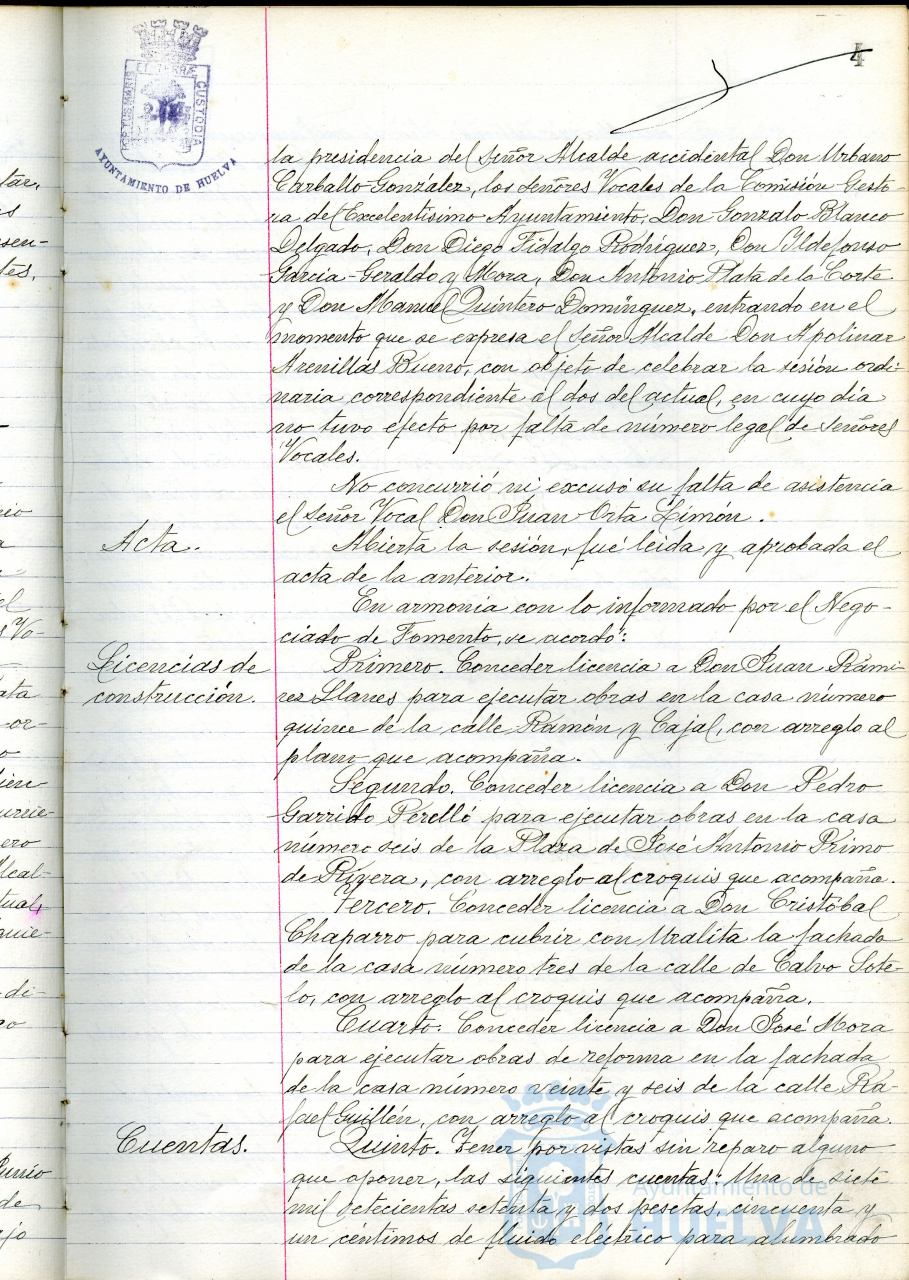 4
PORTUS MARIS ET TERRAE CUSTODIA
AYUNTAMIENTO DE HUELVA
la presidencia del Señor Alcalde accidental Don Urbano
Carballo González, los señores Vocales de la Comisión Gesto-
ra del Excelentísimo Ayuntamiento, Don Gonzalo Blanco
Delgado, Don Diego Fidalgo Rodríguez, Don Ildefonso
García-Geraldo y Mora, Don Antonio Plata de la Corte
y Don Manuel Quintero Domínguez, entrando en el
momento que se expresa el Señor Alcalde Don Apolinar
Arenillas Bueno, con objeto de celebrar la sesión ordi-
naria correspondiente al dos del actual, en cuyo día
no tuvo efecto por falta de número legal de señores
Vocales.
No concurrió ni excusó su falta de asistencia
el Señor Vocal Don Juan Orta Limón.
Acta.
Abierta la sesión, fué leida y aprobada el
acta de la anterior.
En armonia con lo informado por el Nego-
ciado de Fomento, se acordó:
Licencias de
construcción.
Primero. Conceder licencia a Don Juan Rami-
rez Llanes para ejecutar obras en la casa número
quince de la calle Ramón y Cajal, con arreglo al
plano que acompaña.
Segundo. Conceder licencia a Don Pedro
Garrido Perelló para ejecutar obras en la casa
número seis de la Plaza de José Antonio Primo
de Rivera, con arreglo al croquis que acompaña.
Tercero. Conceder licencia a Don Cristóbal
Chaparro para cubrir con Uralita la fachada
de la casa número tres de la calle de Calvo Sote-
lo, con arreglo al croquis que acompaña.
Cuarto. Conceder licencia a Don José Mora
para ejecutar obras de reforma en la fachada
de la casa número veinte y seis de la calle Ra-
fael Guillén, con arreglo al croquis que acompaña.
Cuentas.
Quinto. Tener por vistas sin reparo alguno
que oponer, las siguientes cuentas: Una de siete
mil setecientas setenta y dos pesetas, cincuenta y
un céntimos de fluido eléctrico para alumbrado
Ayuntamiento de
HUELVA